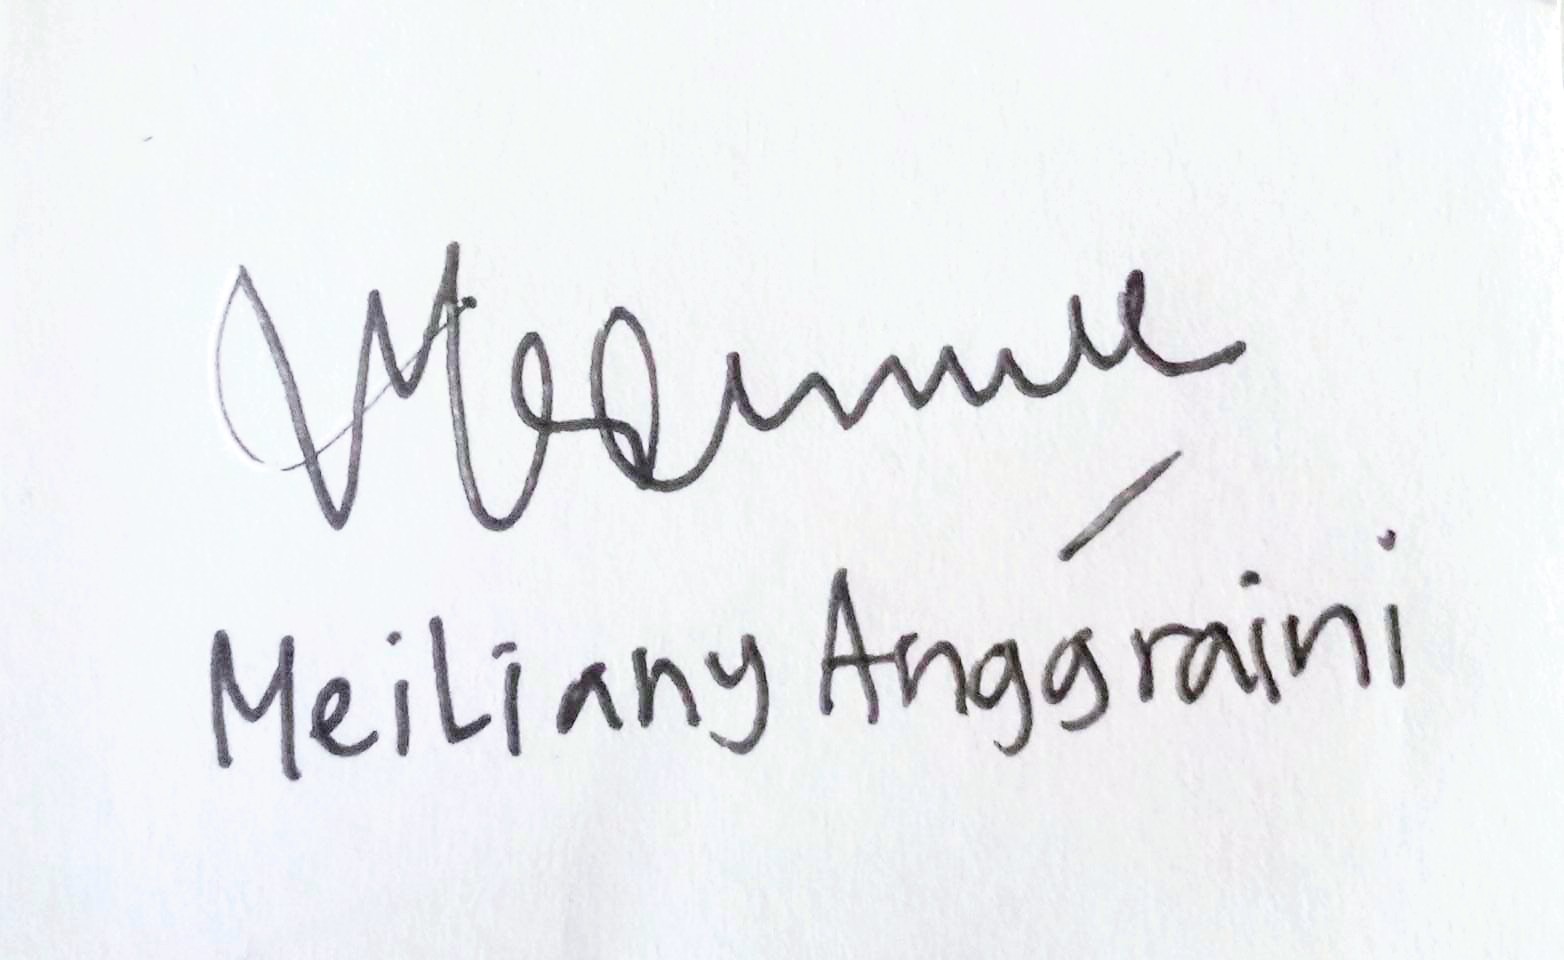 Meiliany Anggraini